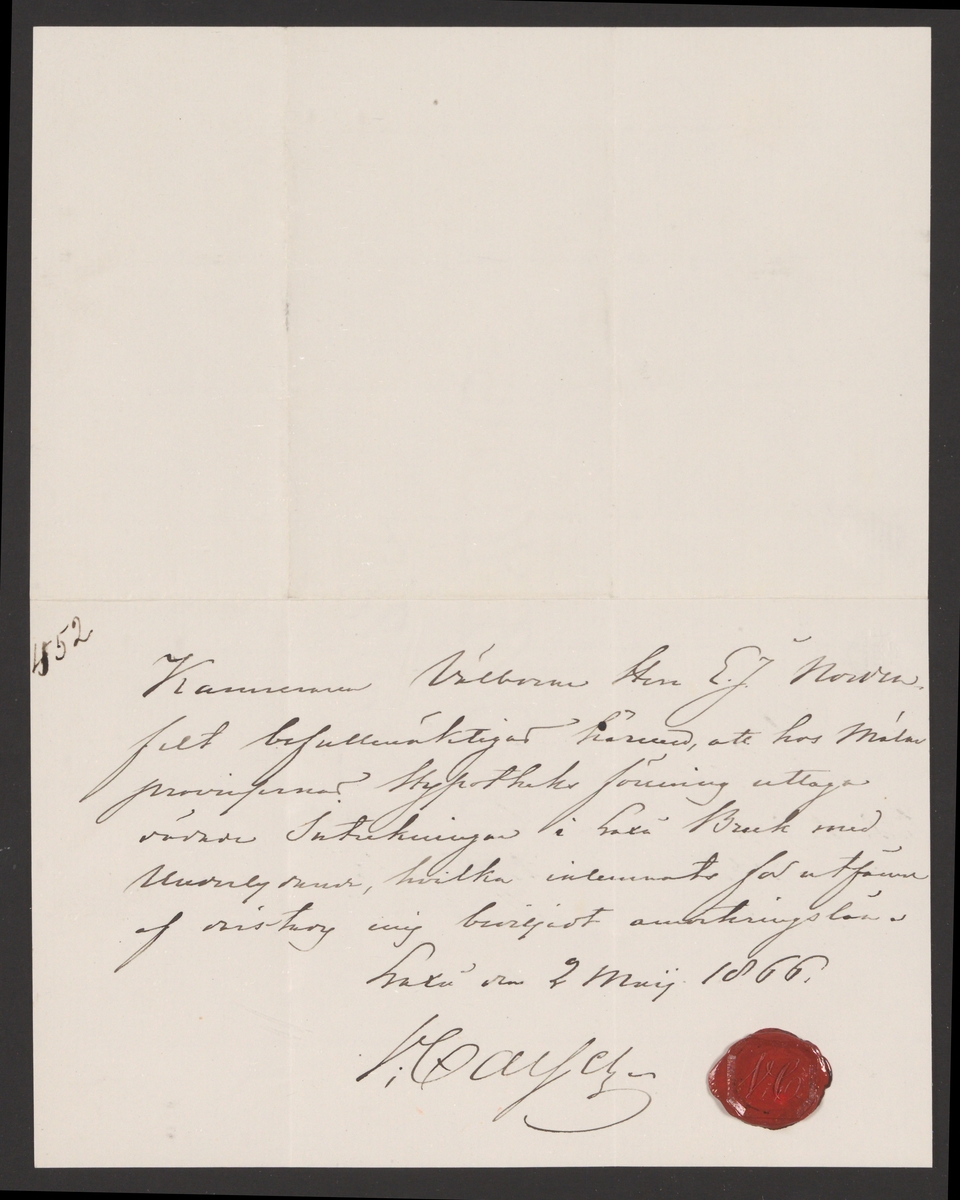 452
Kamreraren Välborne Herr E. J. Norden-
felt befullmäktigas härmed, att hos Mälar
provinsernas Hypotheks förening uttaga
dödade Inteckningar i Laxå Bruk med
Underlydande, hvilka inlemnats för utfåen
af
mig beviljadt amorteringslån.
Laxå den 2 Maij 1866.
VC